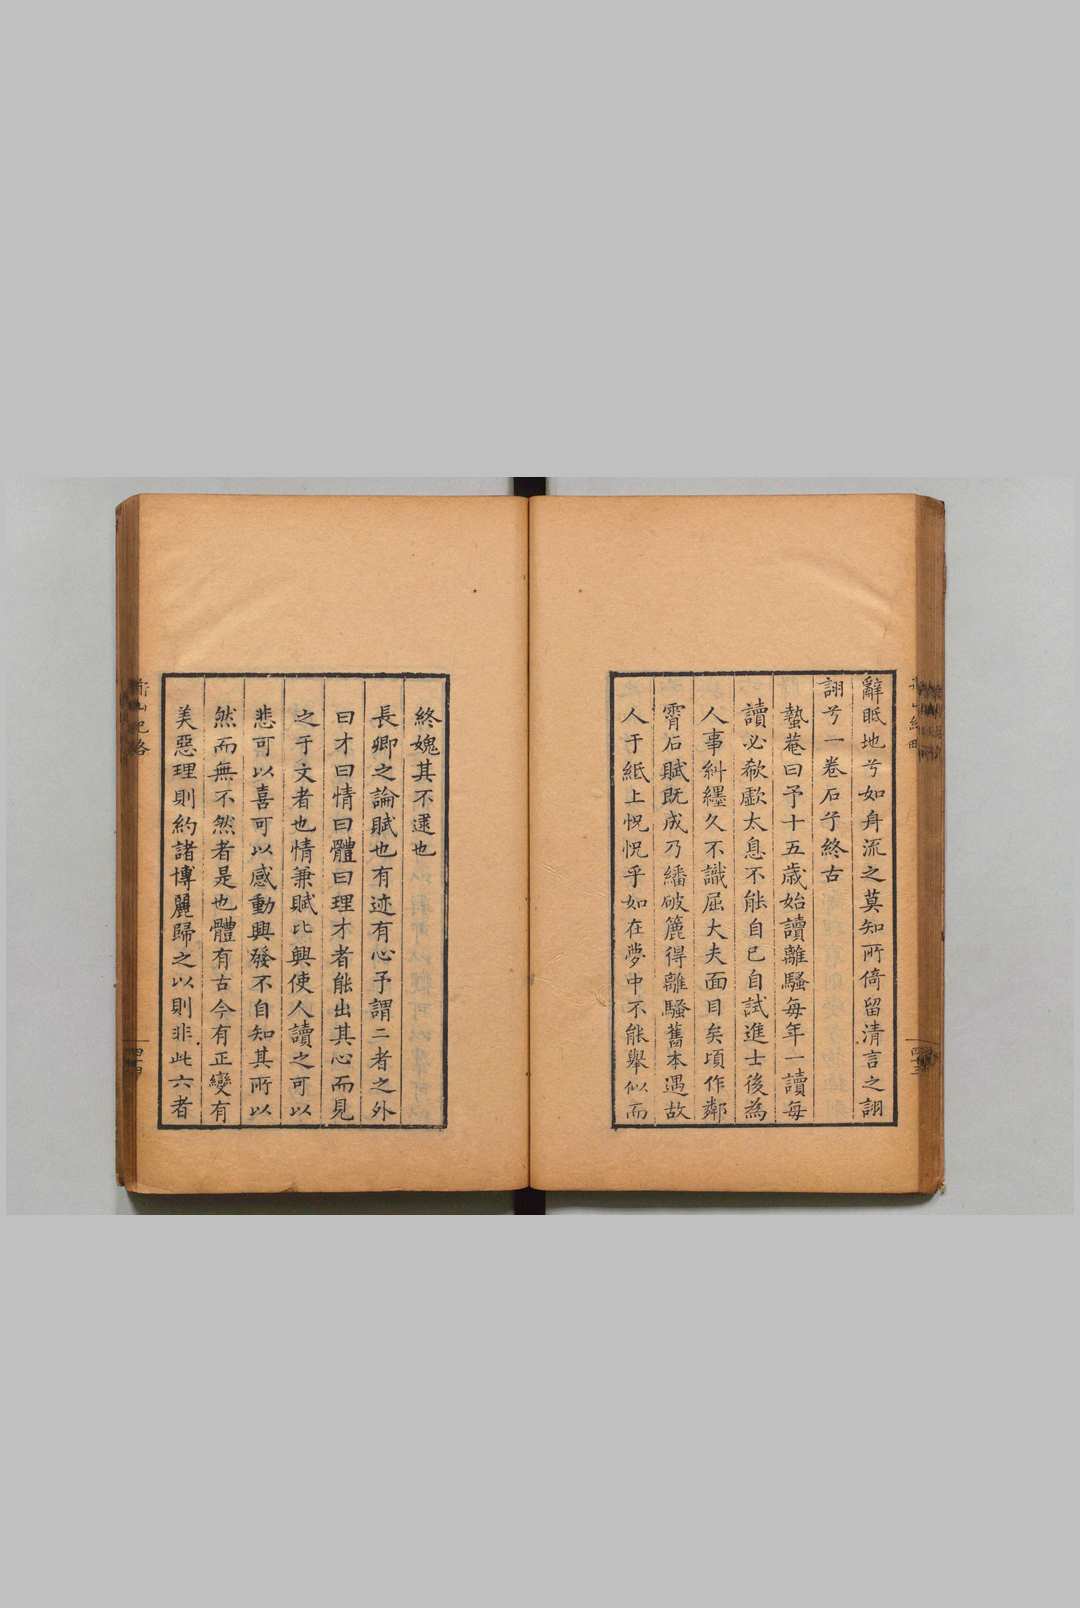 辭眡地兮如舟流之莫知所倚留清言之詡
詡兮一卷石兮終古
蟄菴曰予十五歲始讀離騷每年一讀每
讀必欷歔太息不能自已自試進士後為
人事糾纆久不識屈大夫面目矣頃作鄰
霄石賦既成乃繙破簏得離騷舊本遇故
人于紙上怳怳乎如在夢中不能舉似而
終媿其不逮也
長卿之論賦也有迹有心予謂二者之外
曰才曰情曰體曰理才者能出其心而見
之于文者也情兼賦比興使人讀之可以
悲可以喜可以感動興發不自知其所以
然而無不然者是也體有古今有正變有
美惡理則約諸博麗歸之以則非此六者